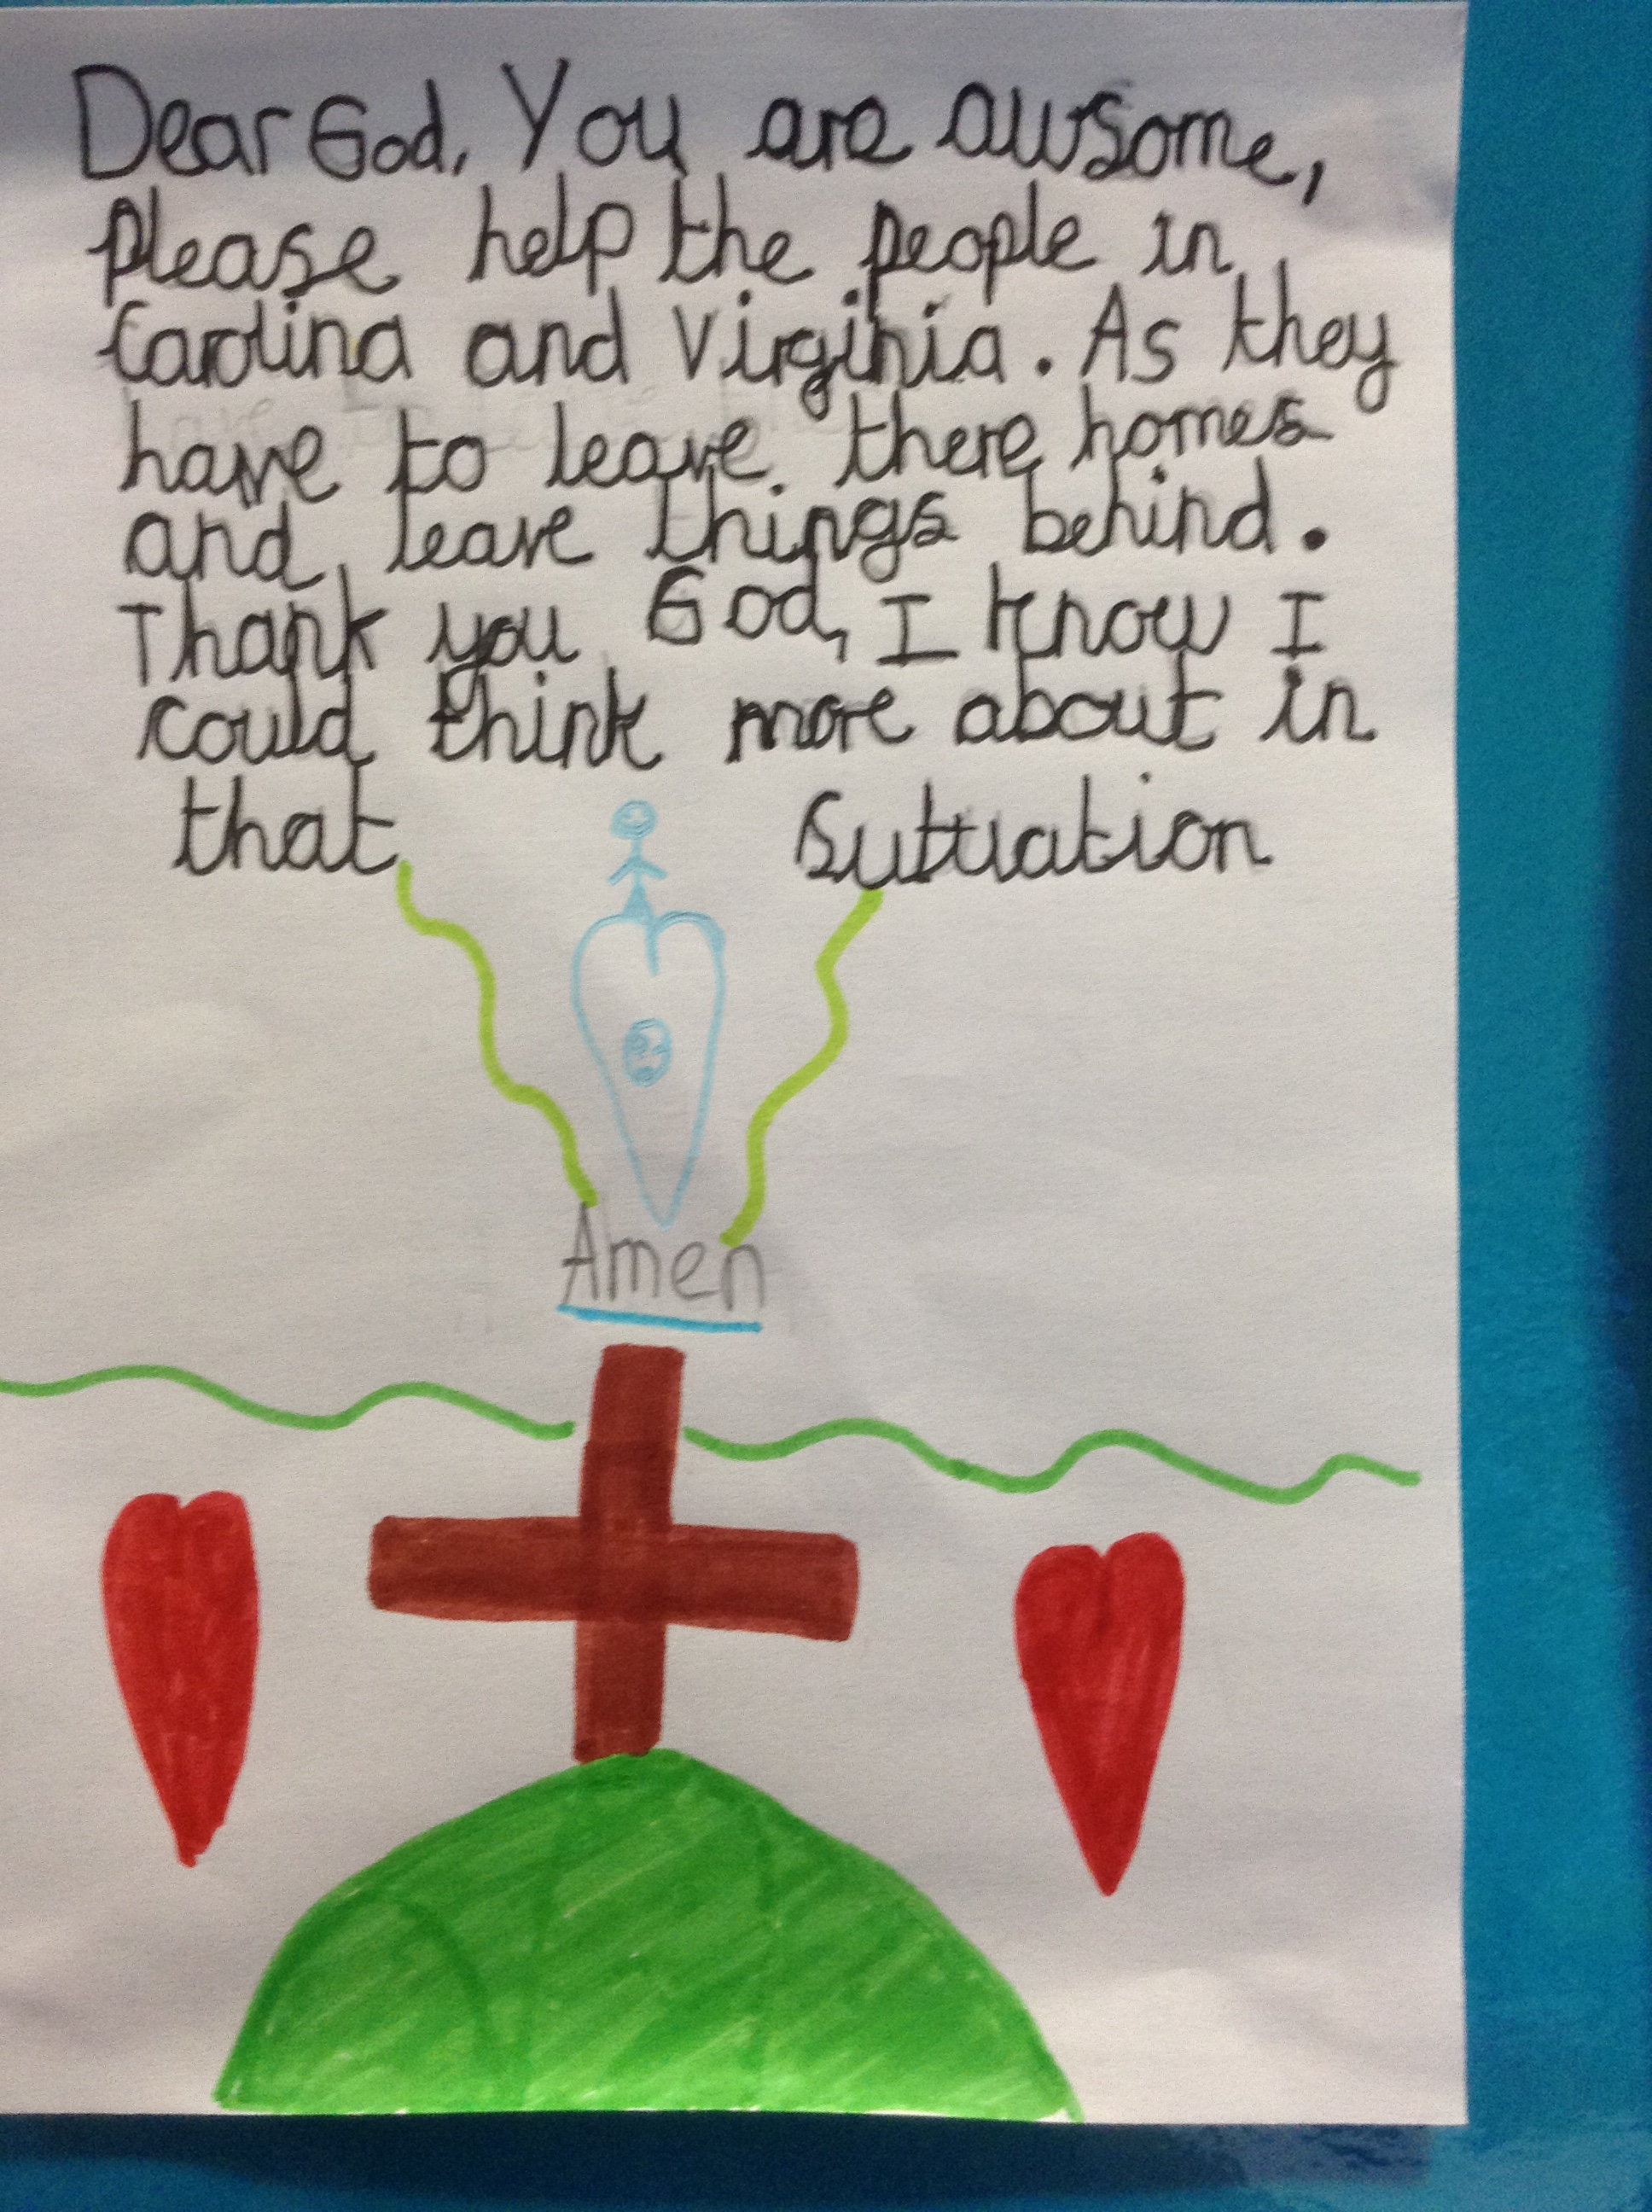 Dear God, You are awsome,
please help the people in
Carolina and Virginia. As they
have to leave there homes
and leave things behind.
Thank you God, I know I
could think more about in
that Sutuation
Amen